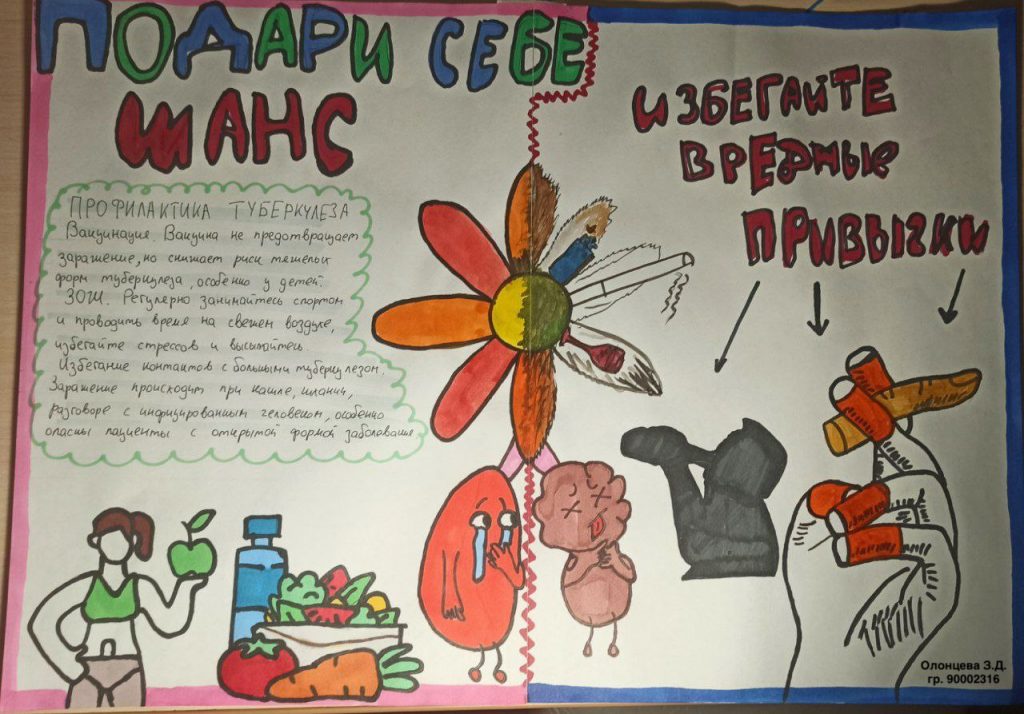 ПОДАРИ СЕБЕ
ШАНС
ПРОФИЛАКТИКА ТУБЕРКУЛЕЗА
Вакцинация. Вакцина не предотвращает
заражение, но снижает риск тяжелых
форм туберкулеза, особенно у детей.
ЗОЖ. Регулярно занимайтесь спортом
и проводить время на свежем воздухе,
избегайте стрессов и высыпайтесь.
Избегание контактов с больными туберкулезом.
Заражение происходит при кашле, чихании,
разговоре с инфицированным человеком, особенно
опасны пациенты с открытой формой заболевания
ИЗБЕГАЙТЕ
ВРЕДНЫЕ
ПРИВЫЧКИ
Олонцева З.Д.
гр. 90002316